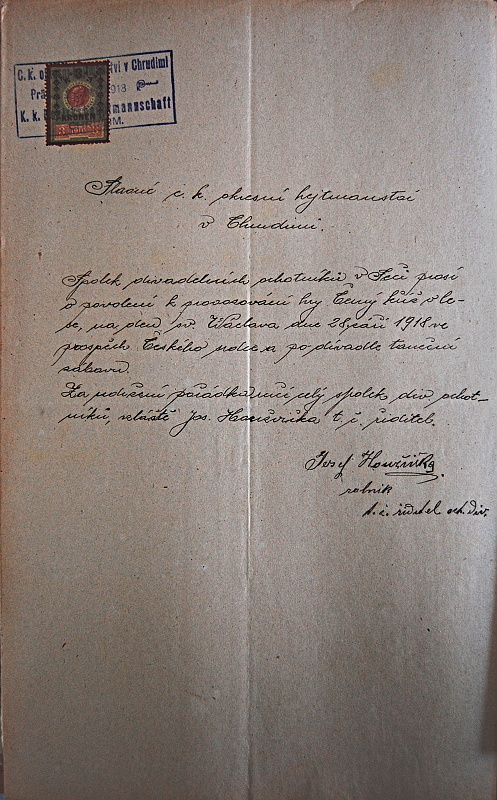 C.k. o tví v Chrudimi
Prá 1918
K. k. B mannschaft
M.
Slavné c. k. okresní hejtmanství
v Chrudimi.
Spolek divadelních ochotníků v Seči prosí
o povolení k provozování hry Černý kříž v le-
se, na den sv. Václava dne 28. září 1918 ve
prospěch Českého srdce a po divadle taneční
zábavu.
Za udržení pořádku ručí celý spolek div. ochot-
níků, zvláště Jos. Houžvička t. č. ředitel.
Josef Houžvička
rolník
t. č. ředitel och. div.